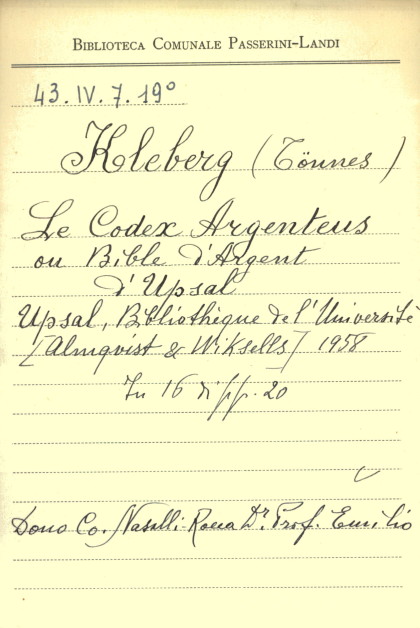 BIBLIOTECA COMUNALE PASSERINI-LANDI
43. IV. 7. 19°
Kleberg (Tönnes)
Le Codex Argenteus
ou Bible d'Argent
d'Upsal
Upsal, Bibliothèque de l'Université
[Almqvist & Wiksells] 1958
In 16 di pp. 20
Dono Co. Nasalli-Rocca Dr. Prof. Emilio